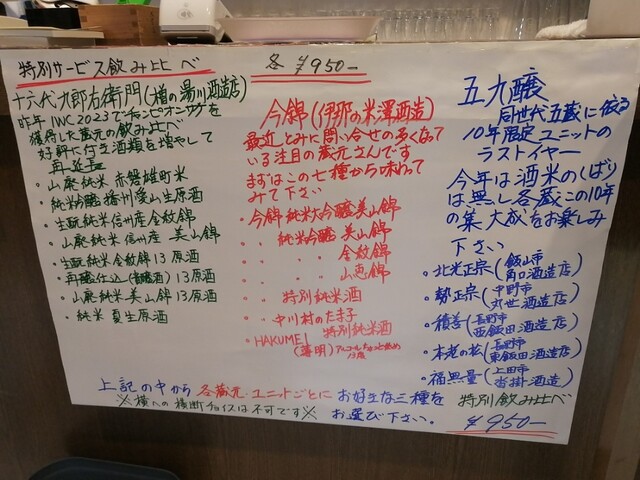 特別サービス飲み比べ
各 ¥950-
十六代九郎右衛門(木曽の湯川酒造店)
昨年IWC2023でチャンピオンサケを
獲得した蔵元の飲み比べ
好評に付き酒類を増やして
再延長
・山廃純米 赤磐雄町米
・純米吟醸 播州愛山生原酒
・生酛純米信州産金紋錦
・山廃純米信州産 美山錦
・生酛純米金紋錦13原酒
・再醸仕込(貴醸酒)13原酒
・山廃純米美山錦13原酒
・純米 夏生原酒
今錦(伊那の米澤酒造)
最近とみに問い合せの多くなって
いる注目の蔵元さんです
まずはこの七種から味わって
みて下さい
・今錦純米大吟醸美山錦
・〃 純米吟醸 美山錦
・〃 〃 金紋錦
・〃 〃 山恵錦
・〃 特別純米酒
・〃 中川村のたま子
・HAKUMEI 特別純米酒
(薄明)アルコールちょっと低め
13度
五九醸
同世代五蔵に依る
10年限定ユニットの
ラストイヤー
今年は酒米のしばり
は無し各蔵この10年
の集大成をお楽しみ
下さい
・北光正宗(飯山市 角口酒造店)
・勢正宗(中野市 丸世酒造店)
・積善(長野市 西飯田酒造店)
・本老の松(長野市 東飯田酒造店)
・福無量(上田市 沓掛酒造)
特別飲み比べ
¥950-
上記の中から各蔵元・ユニットごとにお好きな三種を
お選び下さい。
※横への横断チョイスは不可です※